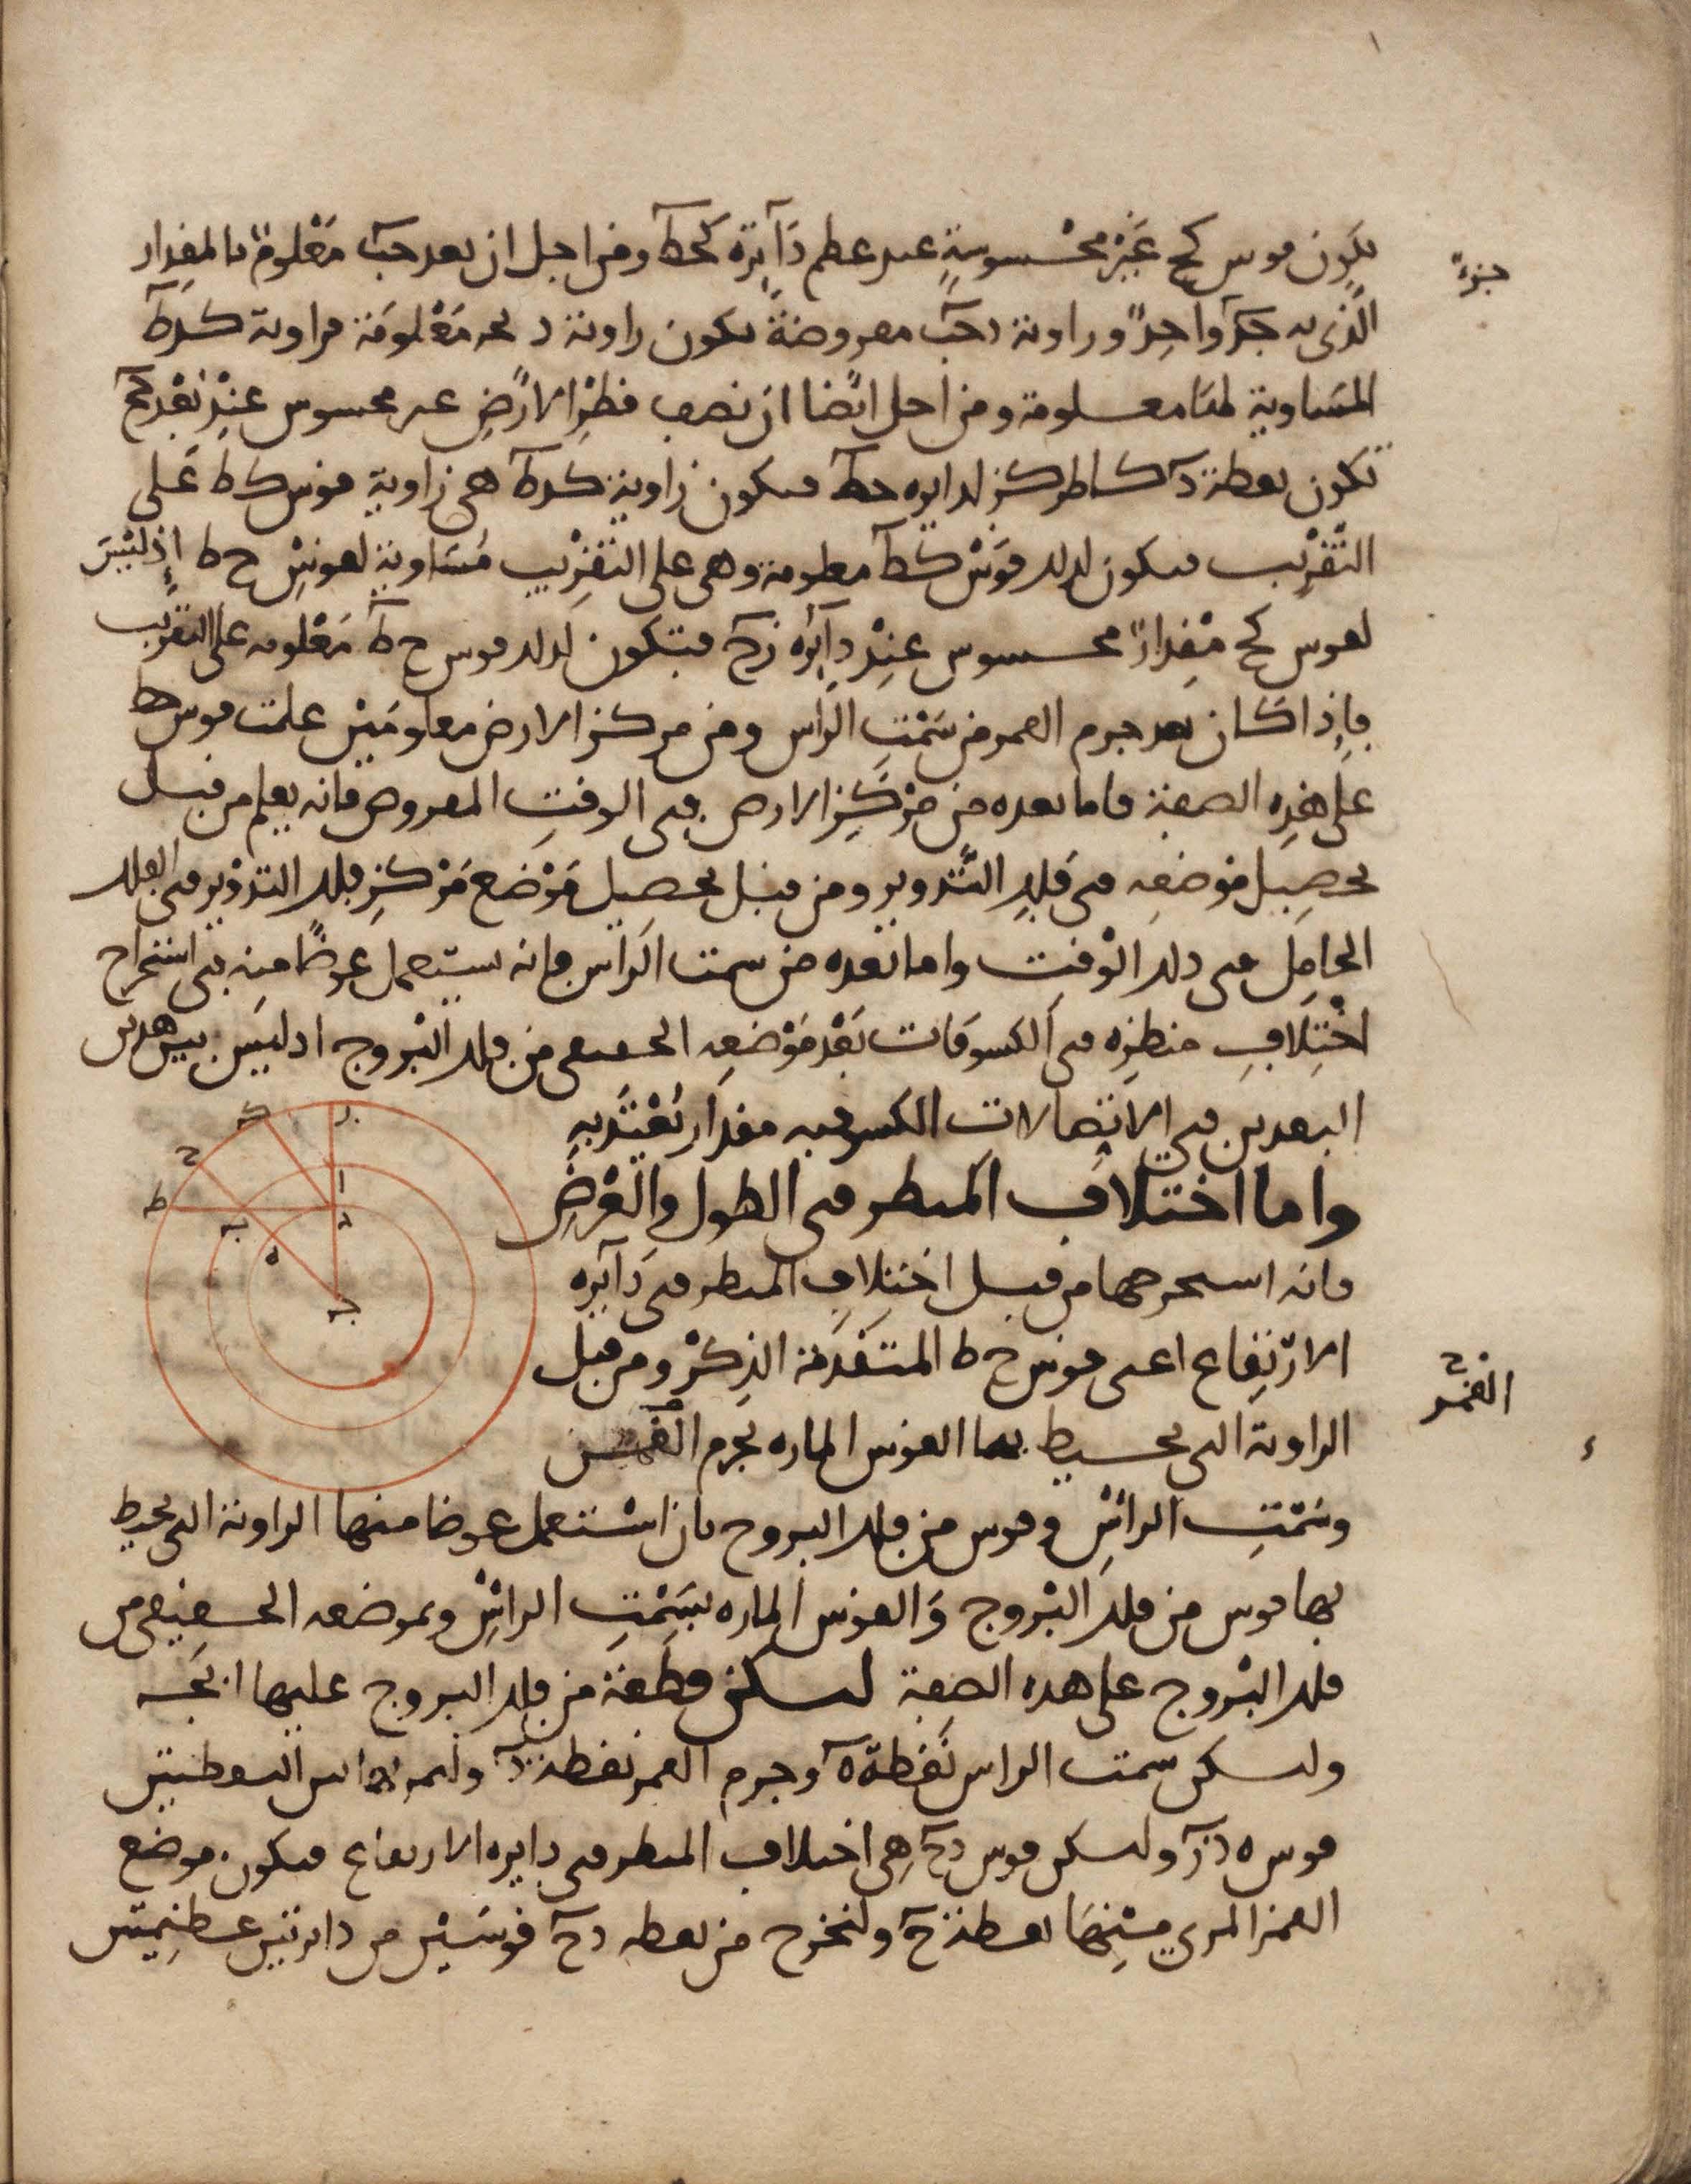 تكون قوس كح غير محسوسة عند عظم دايرة كحط ومن اجل ان بعد حب معلوم بالمقدار
جزءً
الذى به جد واحدٌ وراوية دحب مفروضة تكون زاوية د معلومة فزاوية كدط
المساوية لها معلومة ومن اجل ايضا ان نصف قطر الارض غير محسوس عند بعد حح
تكون نقطة د كالمركز لدايره حط فتكون زاوية كدط هى زاوية قوس كط على
التقريب فتكون لذلك قوس كط معلومة وهى على التقريب مساوية لقوس ح ط إذ ليس
لقوس كح مقدارٌ محسوس عند دايره زح فتكون لذلك قوس ح ط معلومه على التقريب
فإذا كان بعد جرم القمر من سمت الراس ومن مركز الارض معلومين علمت قوس حط
على هذه الصفة فاما بعده من مركز الارض فى الوقت المفروض فانه يعلم من قبل
تحصيل موضعه فى فلك التدوير ومن قبل تحصيل موضع مركز فلك التدوير فى الفلك
الحامل فى ذلك الوقت واما بعده من سمت الراس فانه يستعمل عوضًا منه فى استخراج
اختلاف منظره فى الكسوفات بعد موضعه الحقيقى من فلك البروج اذ ليس بين هذين
البعدين فى الاتصالات الكسوفيه مقدار يعتد به
واما اختلاف المنظر فى الطول والعرض
فانه استخرجهما من قبل اختلاف المنظر فى دايره
الارتفاع اعنى قوس ح ط المتقدمة الذكر ومن قبل
الزاوية التى يحيط بها القوس الماره بجرم
القمر
وسمت الراس وقوس من فلك البروج بان استعمل عوضا منها الزاوية التى يحيط
بها قوس من فلك البروج والقوس الماره بسمت الراس وبموضعه الحقيقى من
فلك البروج على هذه الصفة لتكن قطعة من فلك البروج عليها
ولتكن سمت الراس نقطة ه وجرم القمر نقطة د ولتمر بهاتين النقطتين
قوس ه د ز ولتكن قوس دح هى اختلاف المنظر فى دايره الارتفاع فتكون موضع
القمر المرى منها نقطة ح ولنخرج من نقطه دح قوسين من دايرتين عظيمتين
ز
ك
ح
ط
ا
د
ب
ه
ج